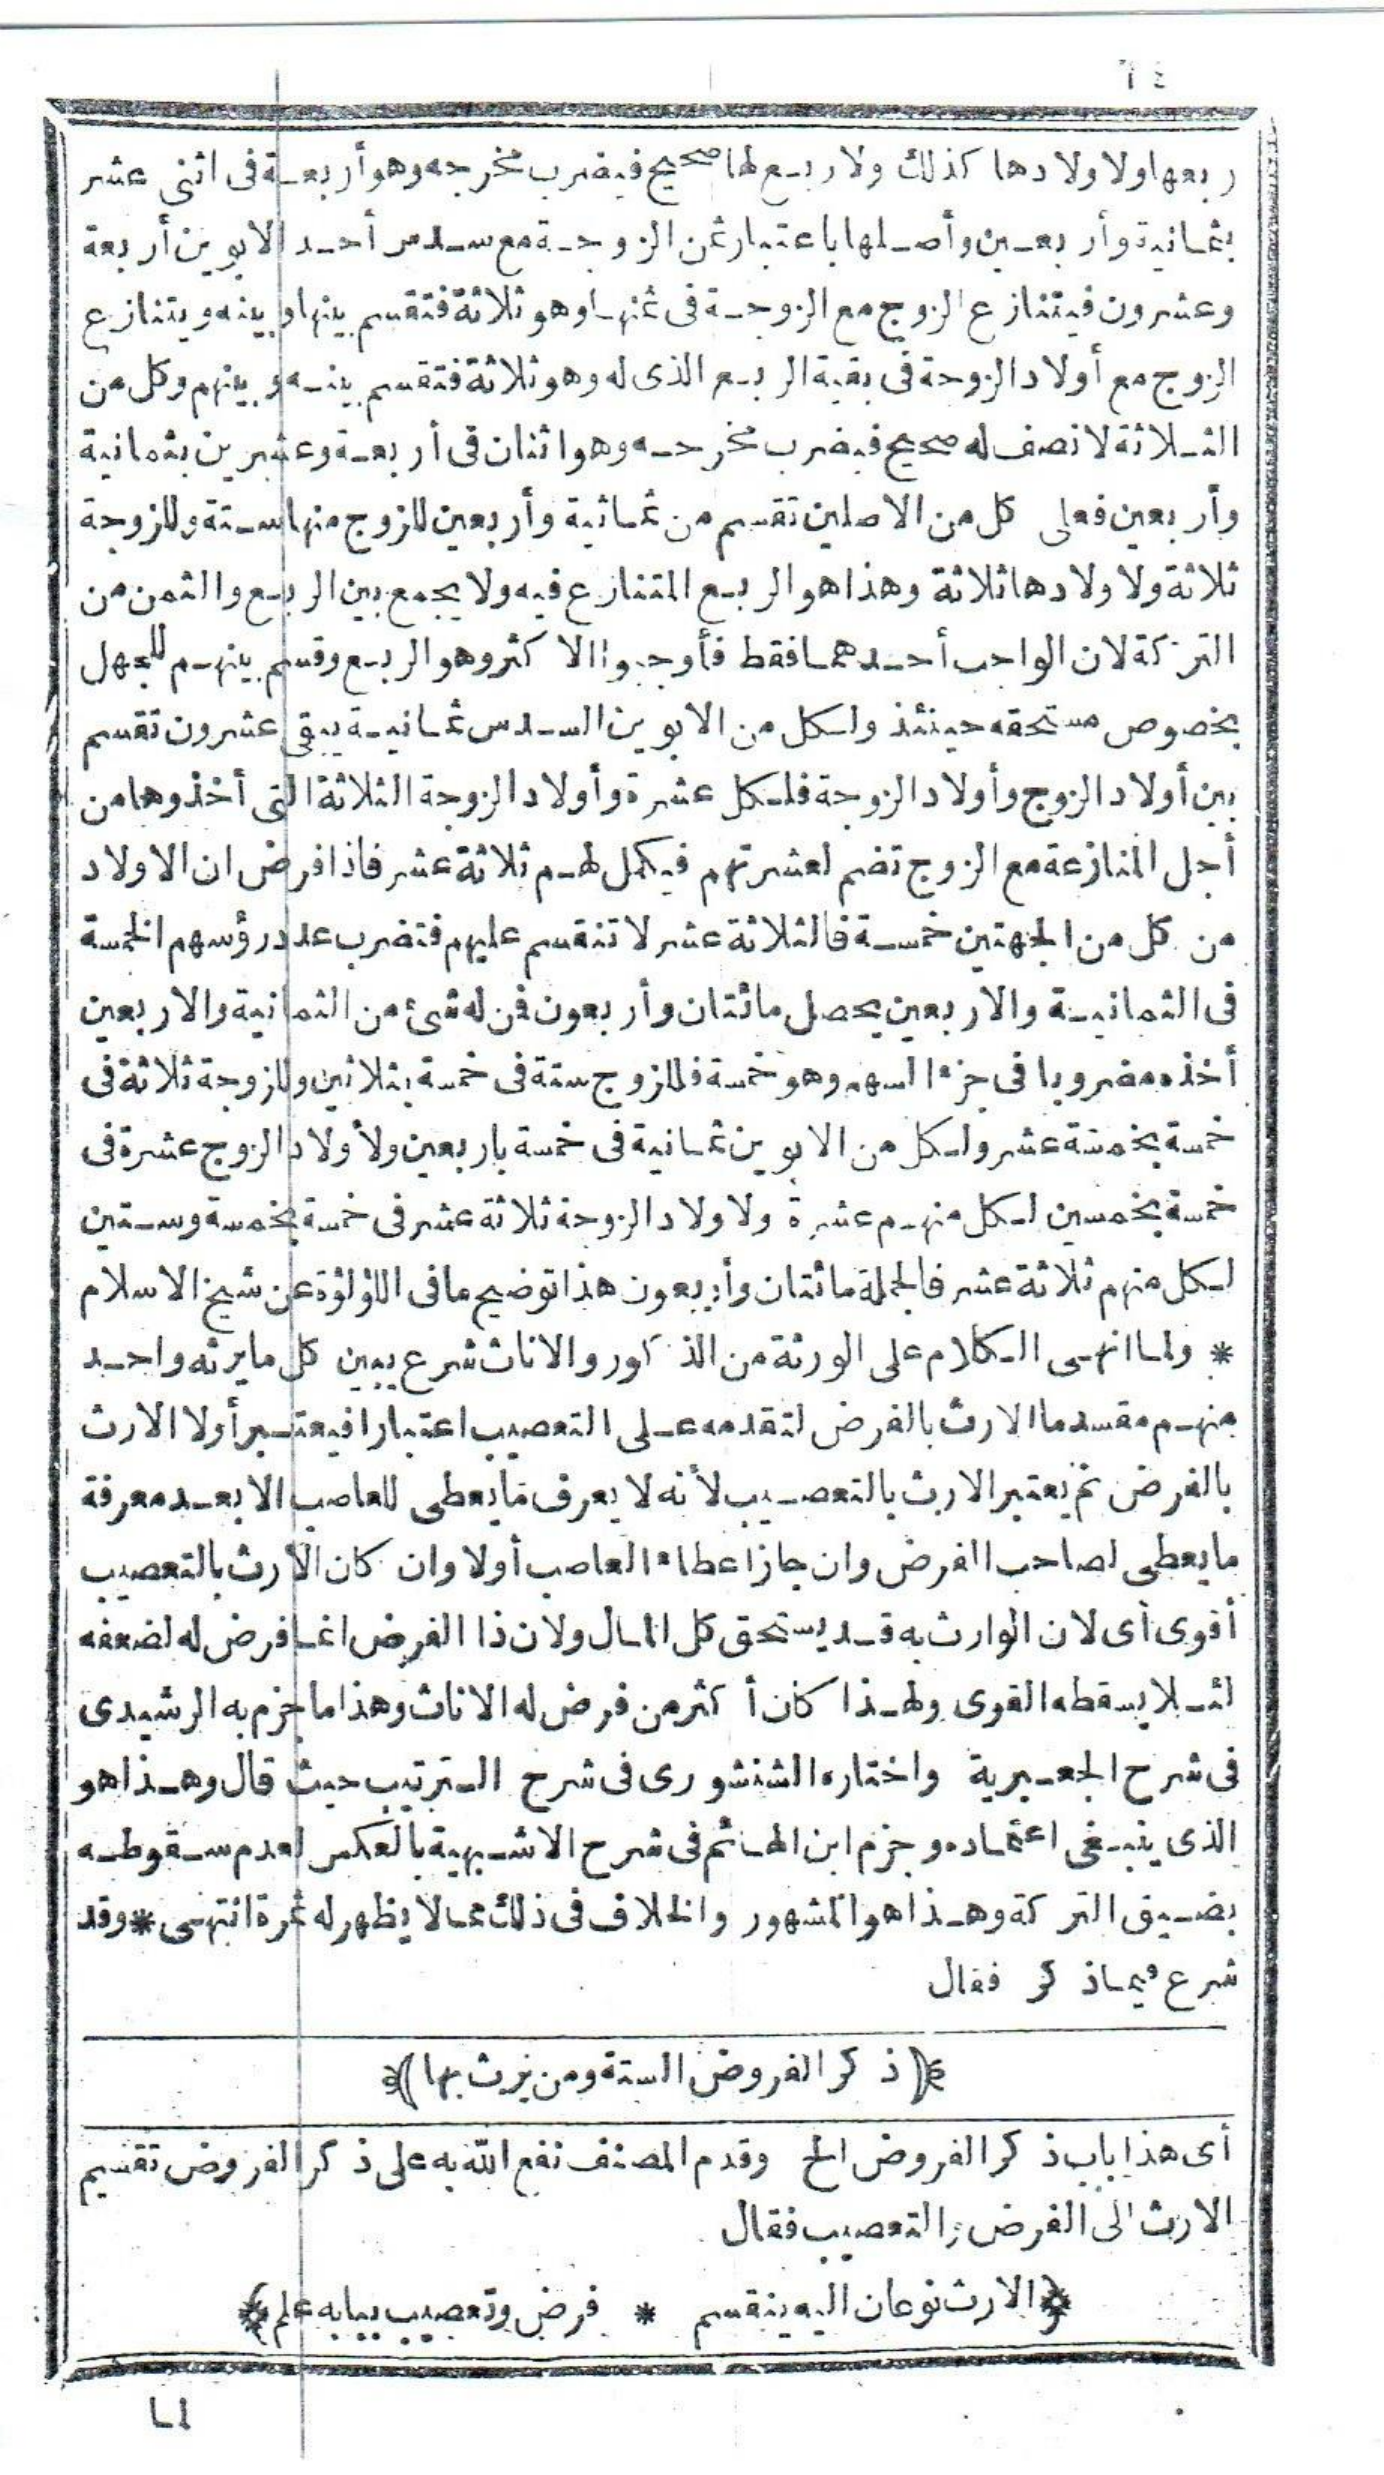 ٦٤
ربعها ولاولادها كذلك ولا ربع لها صحيح فيضرب مخرجه وهو أربعة فى اثنى عشر
بثمانية وأربعين وأصلها باعتبار ثمن الزوجة مع سدس أحد الابوين أربعة
وعشرون فيتنازع الزوج مع الزوجة فى ثمنها وهو ثلاثة فتقسم بينها وبينه ويتنازع
الزوج مع أولاد الزوجة فى بقية الربع الذى له وهو ثلاثة فتقسم بينه وبينهم وكل من
الثلاثة لا نصف له صحيح فيضرب مخرجه وهو اثنان فى أربعة وعشرين بثمانية
وأربعين فعلى كل من الاصلين تقسم من ثمانية وأربعين للزوج منها ستة وللزوجة
ثلاثة ولاولادها ثلاثة وهذا هو الربع المتنازع فيه ولا يجمع بين الربع والثمن من
التركة لان الواجب أحدهما فقط فأوجبوا الاكثر وهو الربع وقسم بينهم للجهل
بخصوص مستحقه حينئذ ولكل من الابوين السدس ثمانية يبقى عشرون تقسم
بين أولاد الزوج وأولاد الزوجة فلكل عشرة وأولاد الزوجة الثلاثة التى أخذوها من
أجل المنازعة مع الزوج تضم لعشرتهم فيكمل لهم ثلاثة عشر فاذا فرض ان الاولاد
من كل من الجهتين خمسة فالثلاثة عشر لا تنقسم عليهم فتضرب عدد رؤسهم الخمسة
فى الثمانية والاربعين يحصل مائتان وأربعون فمن له شئ من الثمانية والاربعين
أخذه مضروبا فى جزء السهم وهو خمسة فللزوج ستة فى خمسة بثلاثين وللزوجة ثلاثة فى
خمسة بخمسة عشر ولكل من الابوين ثمانية فى خمسة باربعين ولأولاد الزوج عشرة فى
خمسة بخمسين لكل منهم عشرة ولاولاد الزوجة ثلاثة عشر فى خمسة بخمسة وستين
لكل منهم ثلاثة عشر فالجملة مائتان وأربعون هذا توضيح ما فى اللؤلؤة عن شيخ الاسلام
* ولما انهى الكلام على الورثة من الذكور والاناث شرع يبين كل ما يرثه واحد
منهم مقدما الارث بالفرض لتقدمه على التعصيب اعتبارا فيعتبر أولا الارث
بالفرض ثم يعتبر الارث بالتعصيب لأنه لا يعرف ما يعطى للعاصب الا بعد معرفة
ما يعطى لصاحب الفرض وان جاز اعطاء العاصب أولا وان كان الارث بالتعصيب
أقوى أى لان الوارث به قد يستحق كل المال ولان ذا الفرض انما فرض له لضعفه
لئلا يسقطه القوى ولهذا كان أكثر من فرض له الاناث وهذا ما جزم به الرشيدى
فى شرح الجعبرية واختاره الشنشورى فى شرح الترتيب حيث قال وهذا هو
الذى ينبغى اعتماده وجزم ابن الهائم فى شرح الاشبهية بالعكس لعدم سقوطه
بضيق التركة وهذا هو المشهور والخلاف فى ذلك مما لا يظهر له ثمرة انتهى * وقد
شرع فيما ذكر فقال
﴿(ذكر الفروض الستة ومن يرث بها)﴾
أى هذا باب ذكر الفروض الخ وقدم المصنف نفع الله به على ذكر الفروض تقسيم
الارث الى الفرض والتعصيب فقال
﴿الارث نوعان اليه ينقسم * فرض وتعصيب ببابه علم﴾
لما